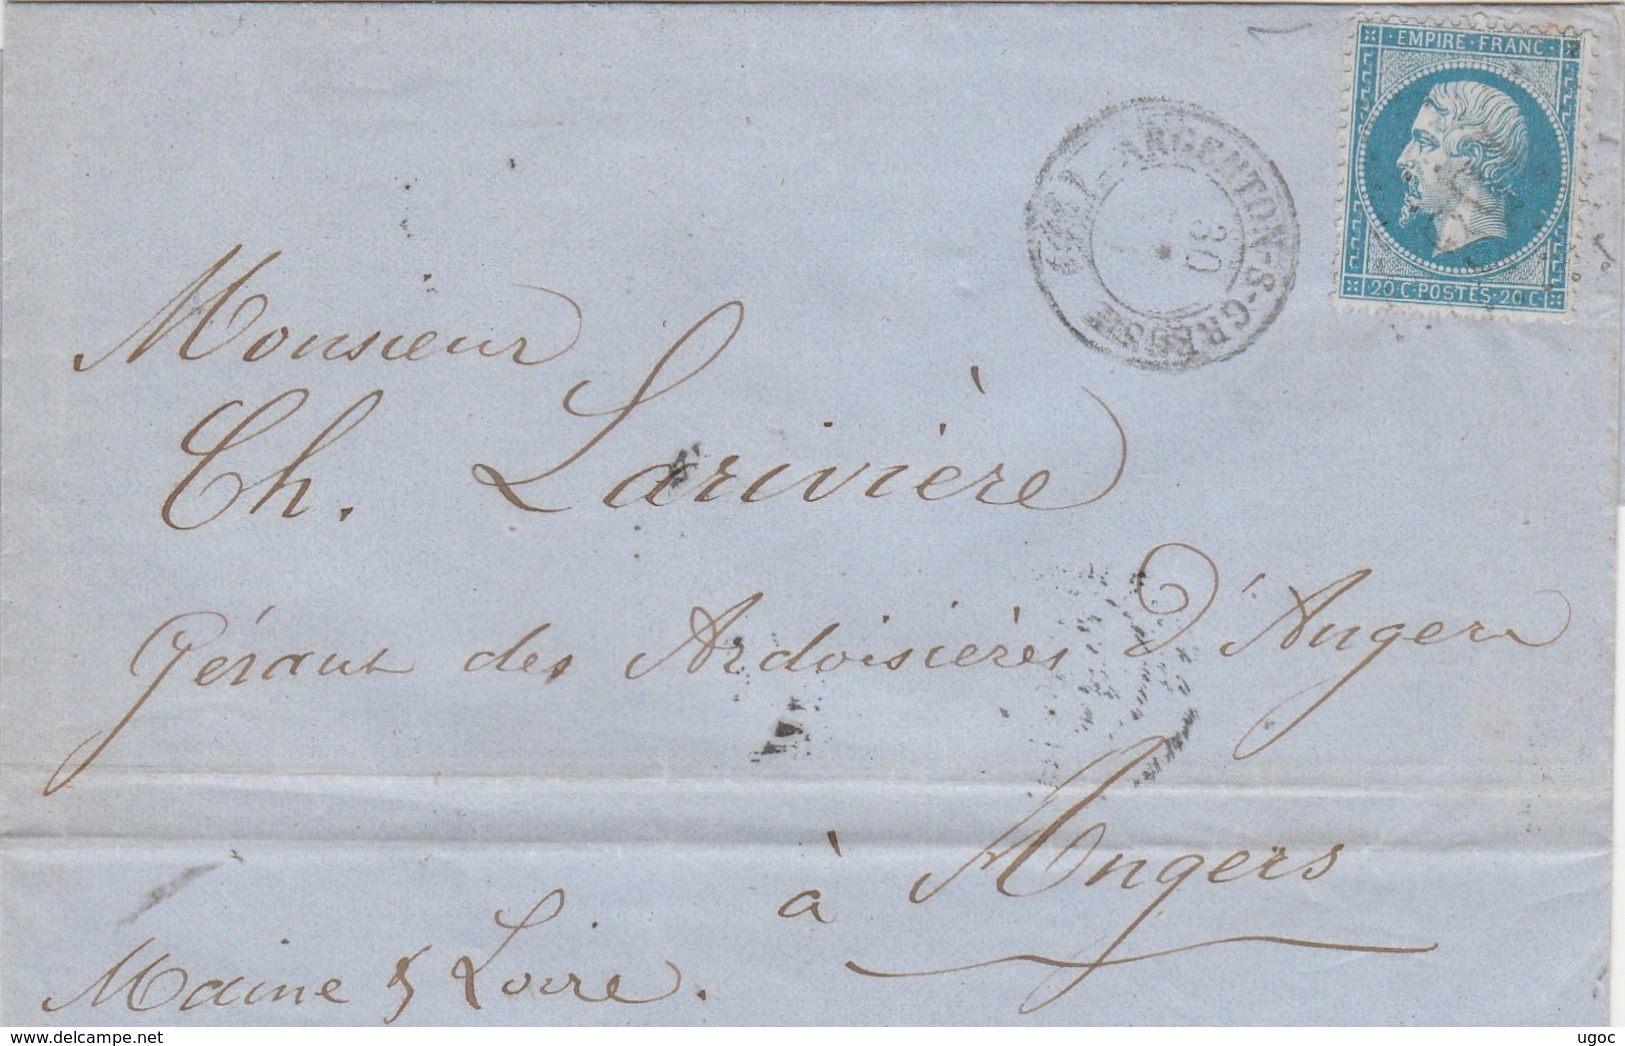 · EMPIRE · FRANC ·
20 C · POSTES · 20 C
ARGENTON-S-CREUSE
30
Monsieur
Ch. Larivière
Gérant des Ardoisières d'Angers
à Angers
Maine & Loire.
www.delcampe.net
ugoc